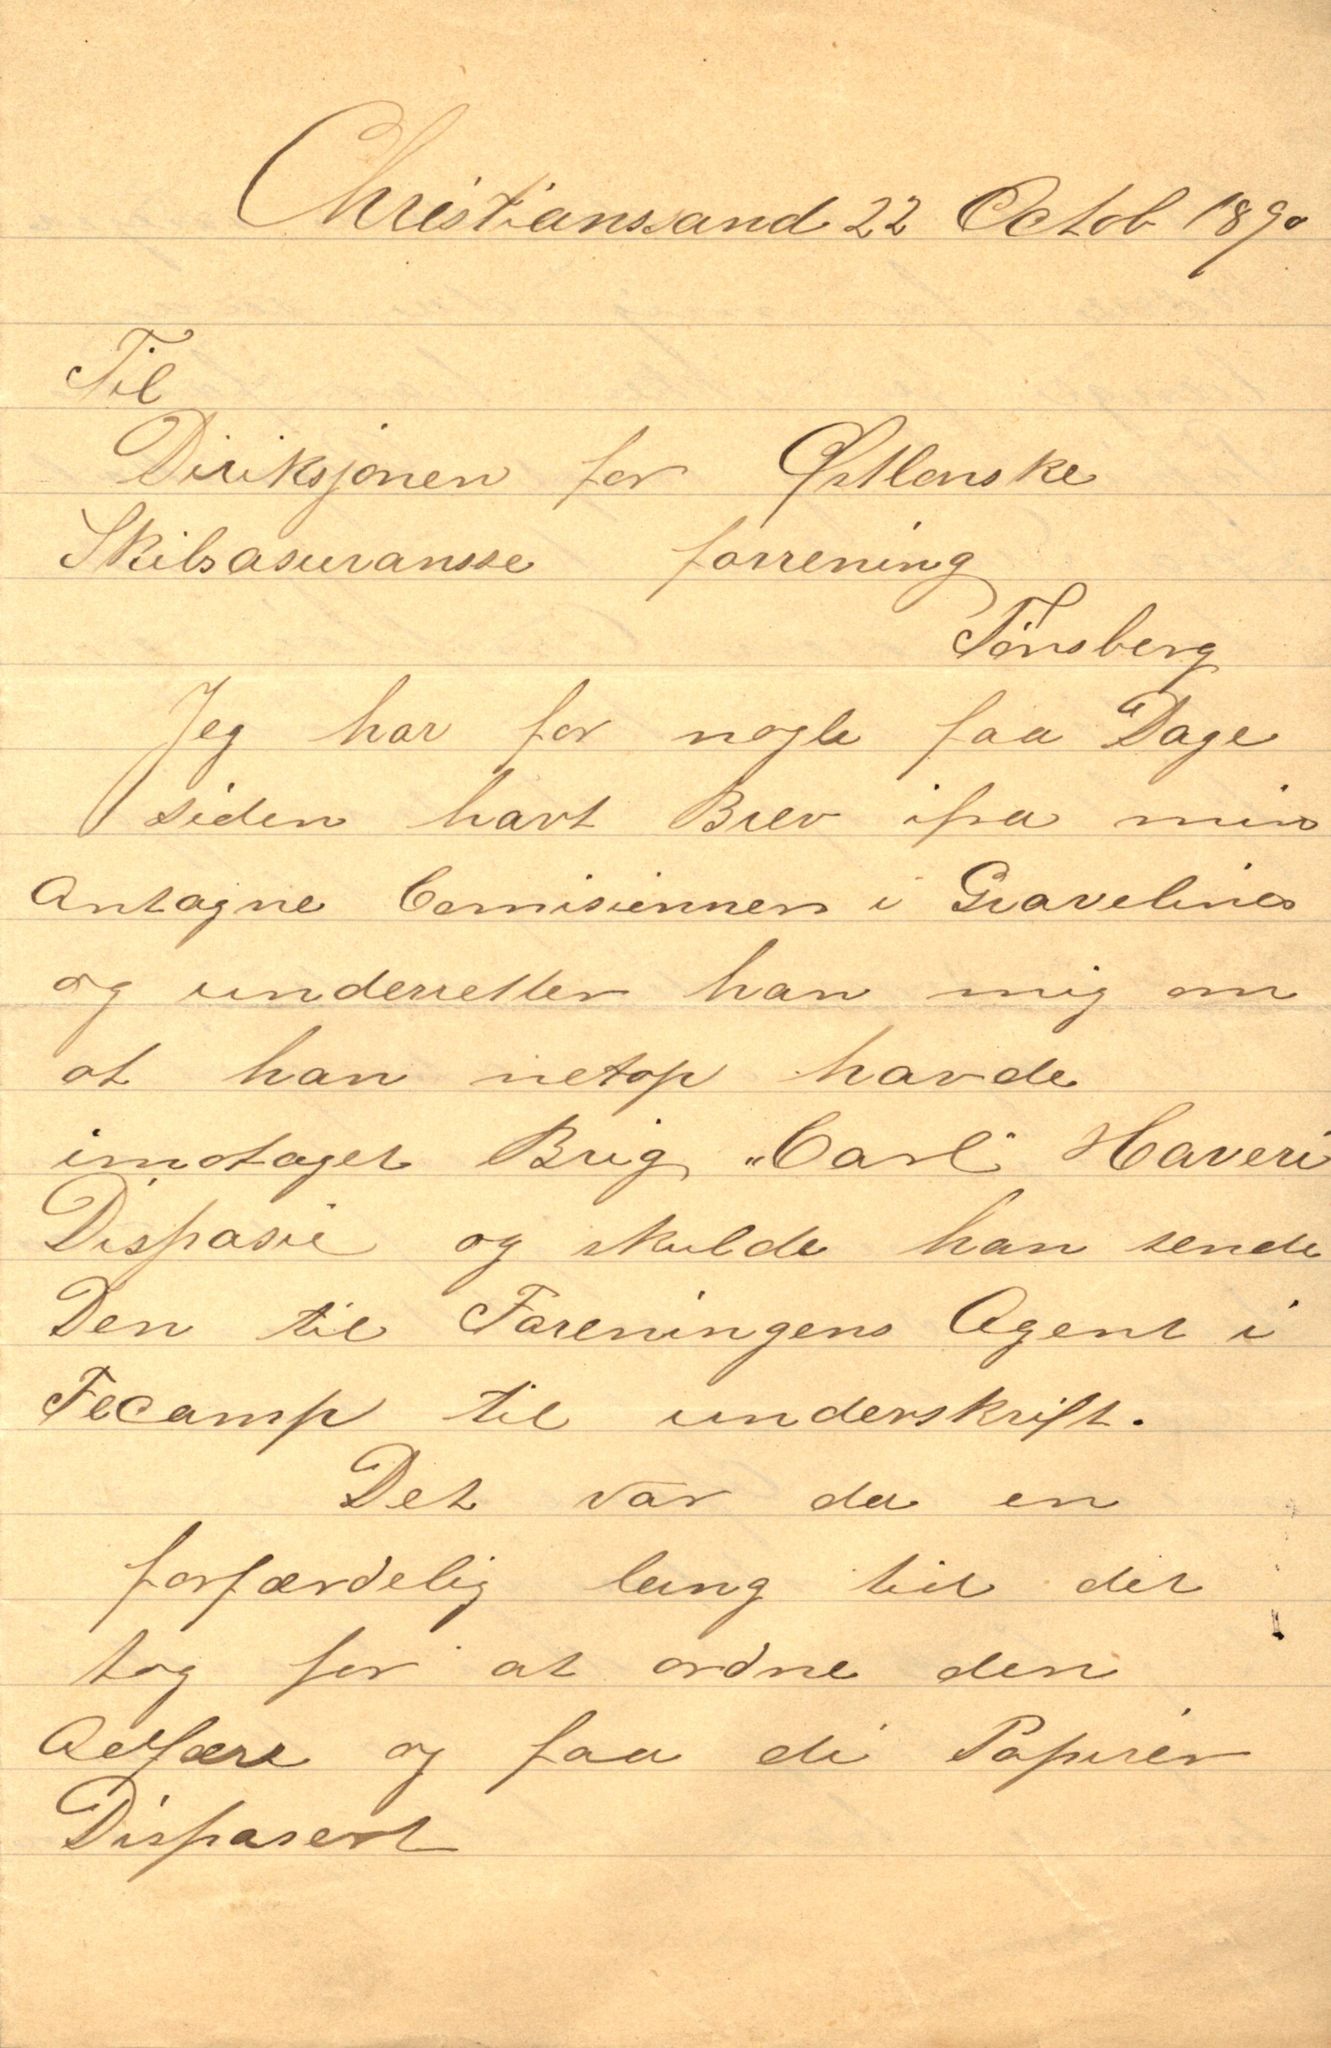 Christianssand 22 Octob 1890
Til
Diriksjonen for Østlenske
Skibsasuransse forrening
Tönsberg
Jeg har for nogle faa Dage
siden havt Brev ifra min
Antagne Comisienner i Gravelines
og underretter han mig om
at han netop havde
imotaget Brig „Carl" Haveri
Dispasie og skulde han sende
Den til Foreningens Agent i
Fecamp til underskrift.
Det var da en
forfærdelig lang tid det
tog for at ordne den
og faa di Papirer
Dispasert